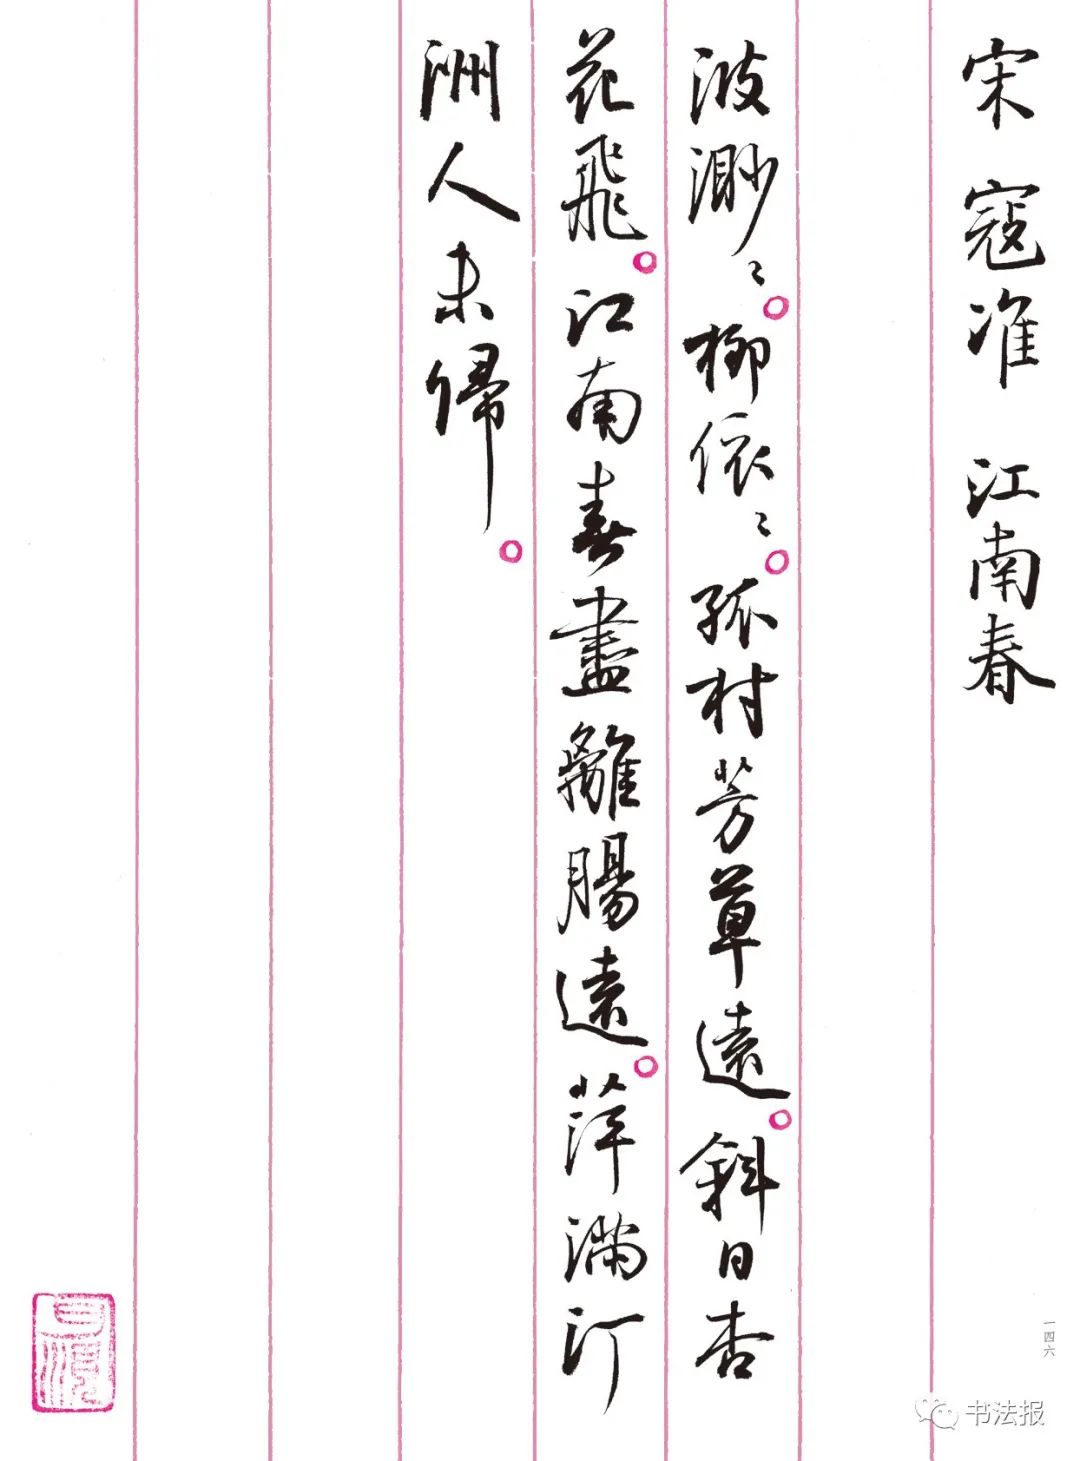 宋 寇准 江南春
波渺〻。柳依〻。孤村芳草遠。斜日杏
花飛。江南春盡離腸遠。萍滿汀
洲人未歸。
一四六
书法报